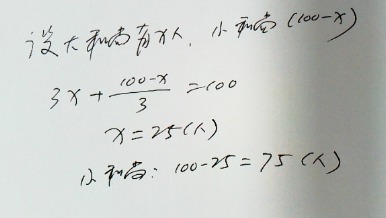 设大和尚有x人,小和尚(100-x)
3x+\frac{100-x}{3}=100
x=25(人)
小和尚:100-25=75(人)